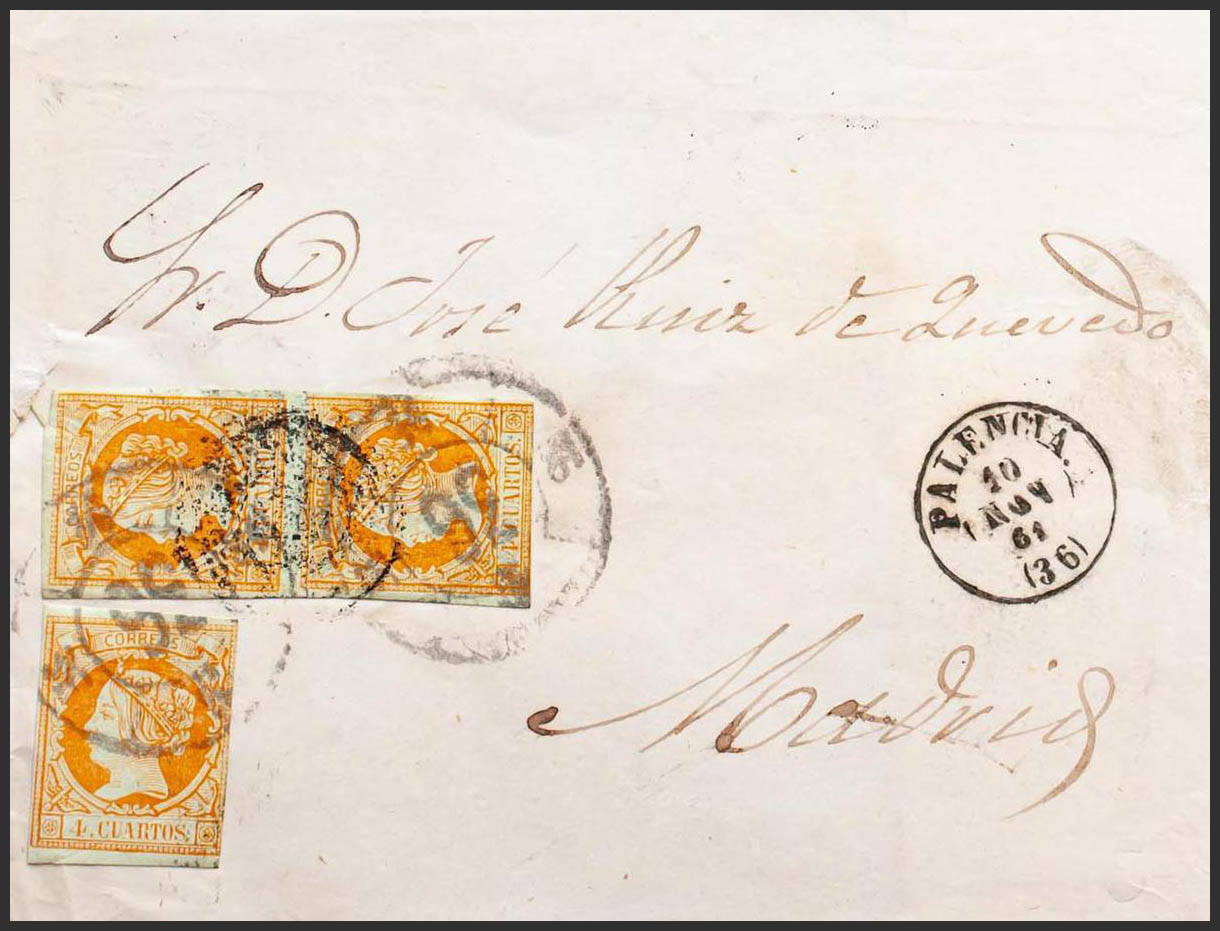 Sr. D. José Ruiz de Quevedo
CORREOS
4 CUARTOS
PALENCIA.
10
NOV
61
(36)
Madrid
CORREOS
4. CUARTOS.